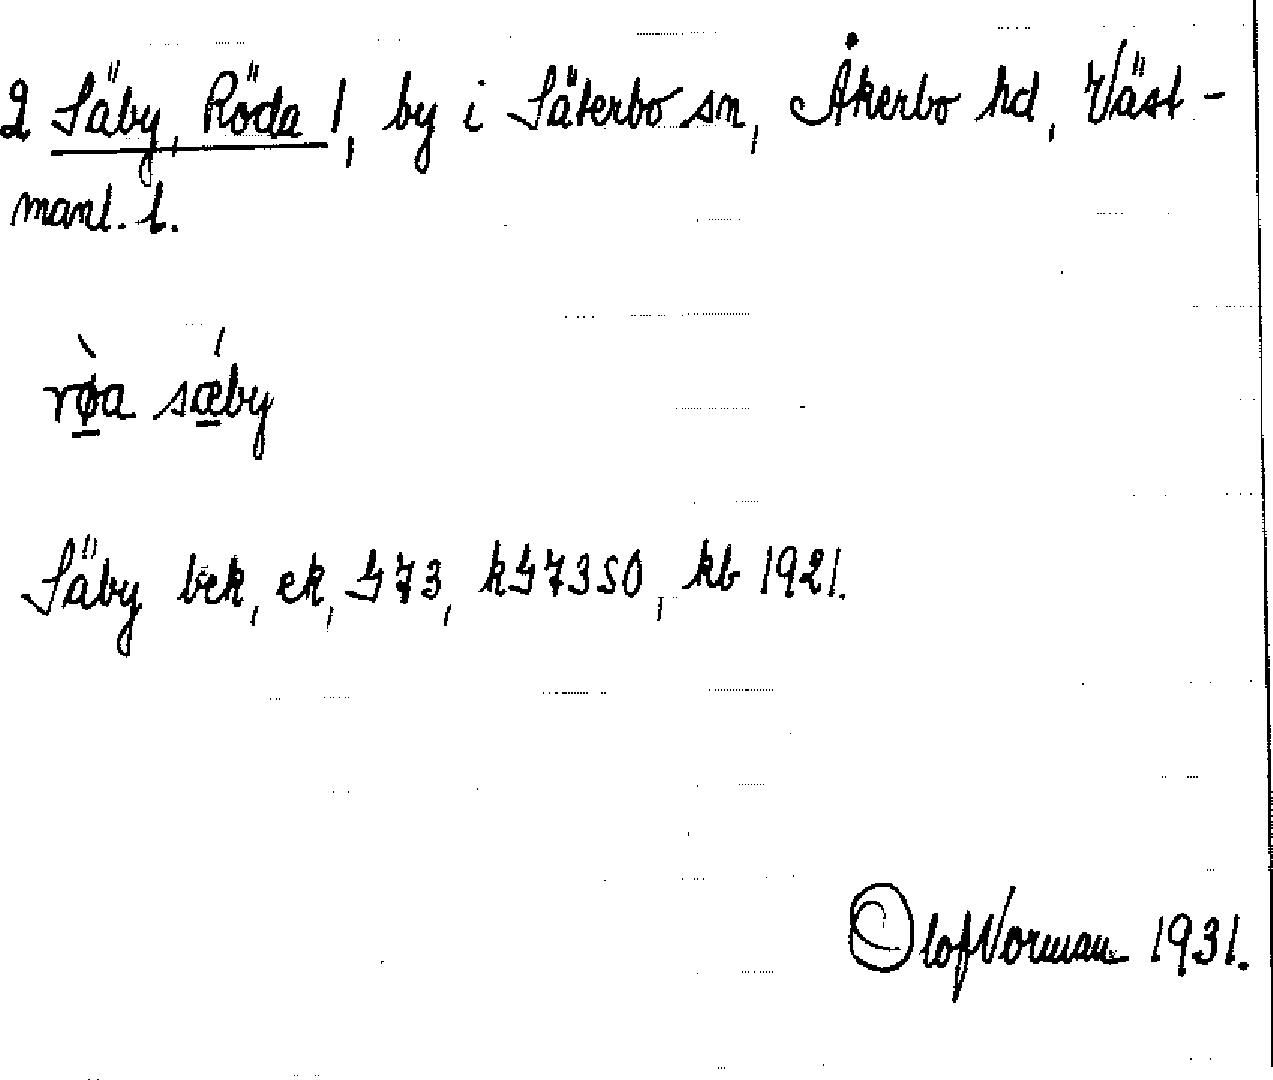 2 Säby, Röda 1, by i Säterbo sn, Åkerbo hd, Väst-
manl. l.
rø̀a sǽby
Säby bek, ek, G73, kG7350, kb 1921.
Olof Vorman 1931.